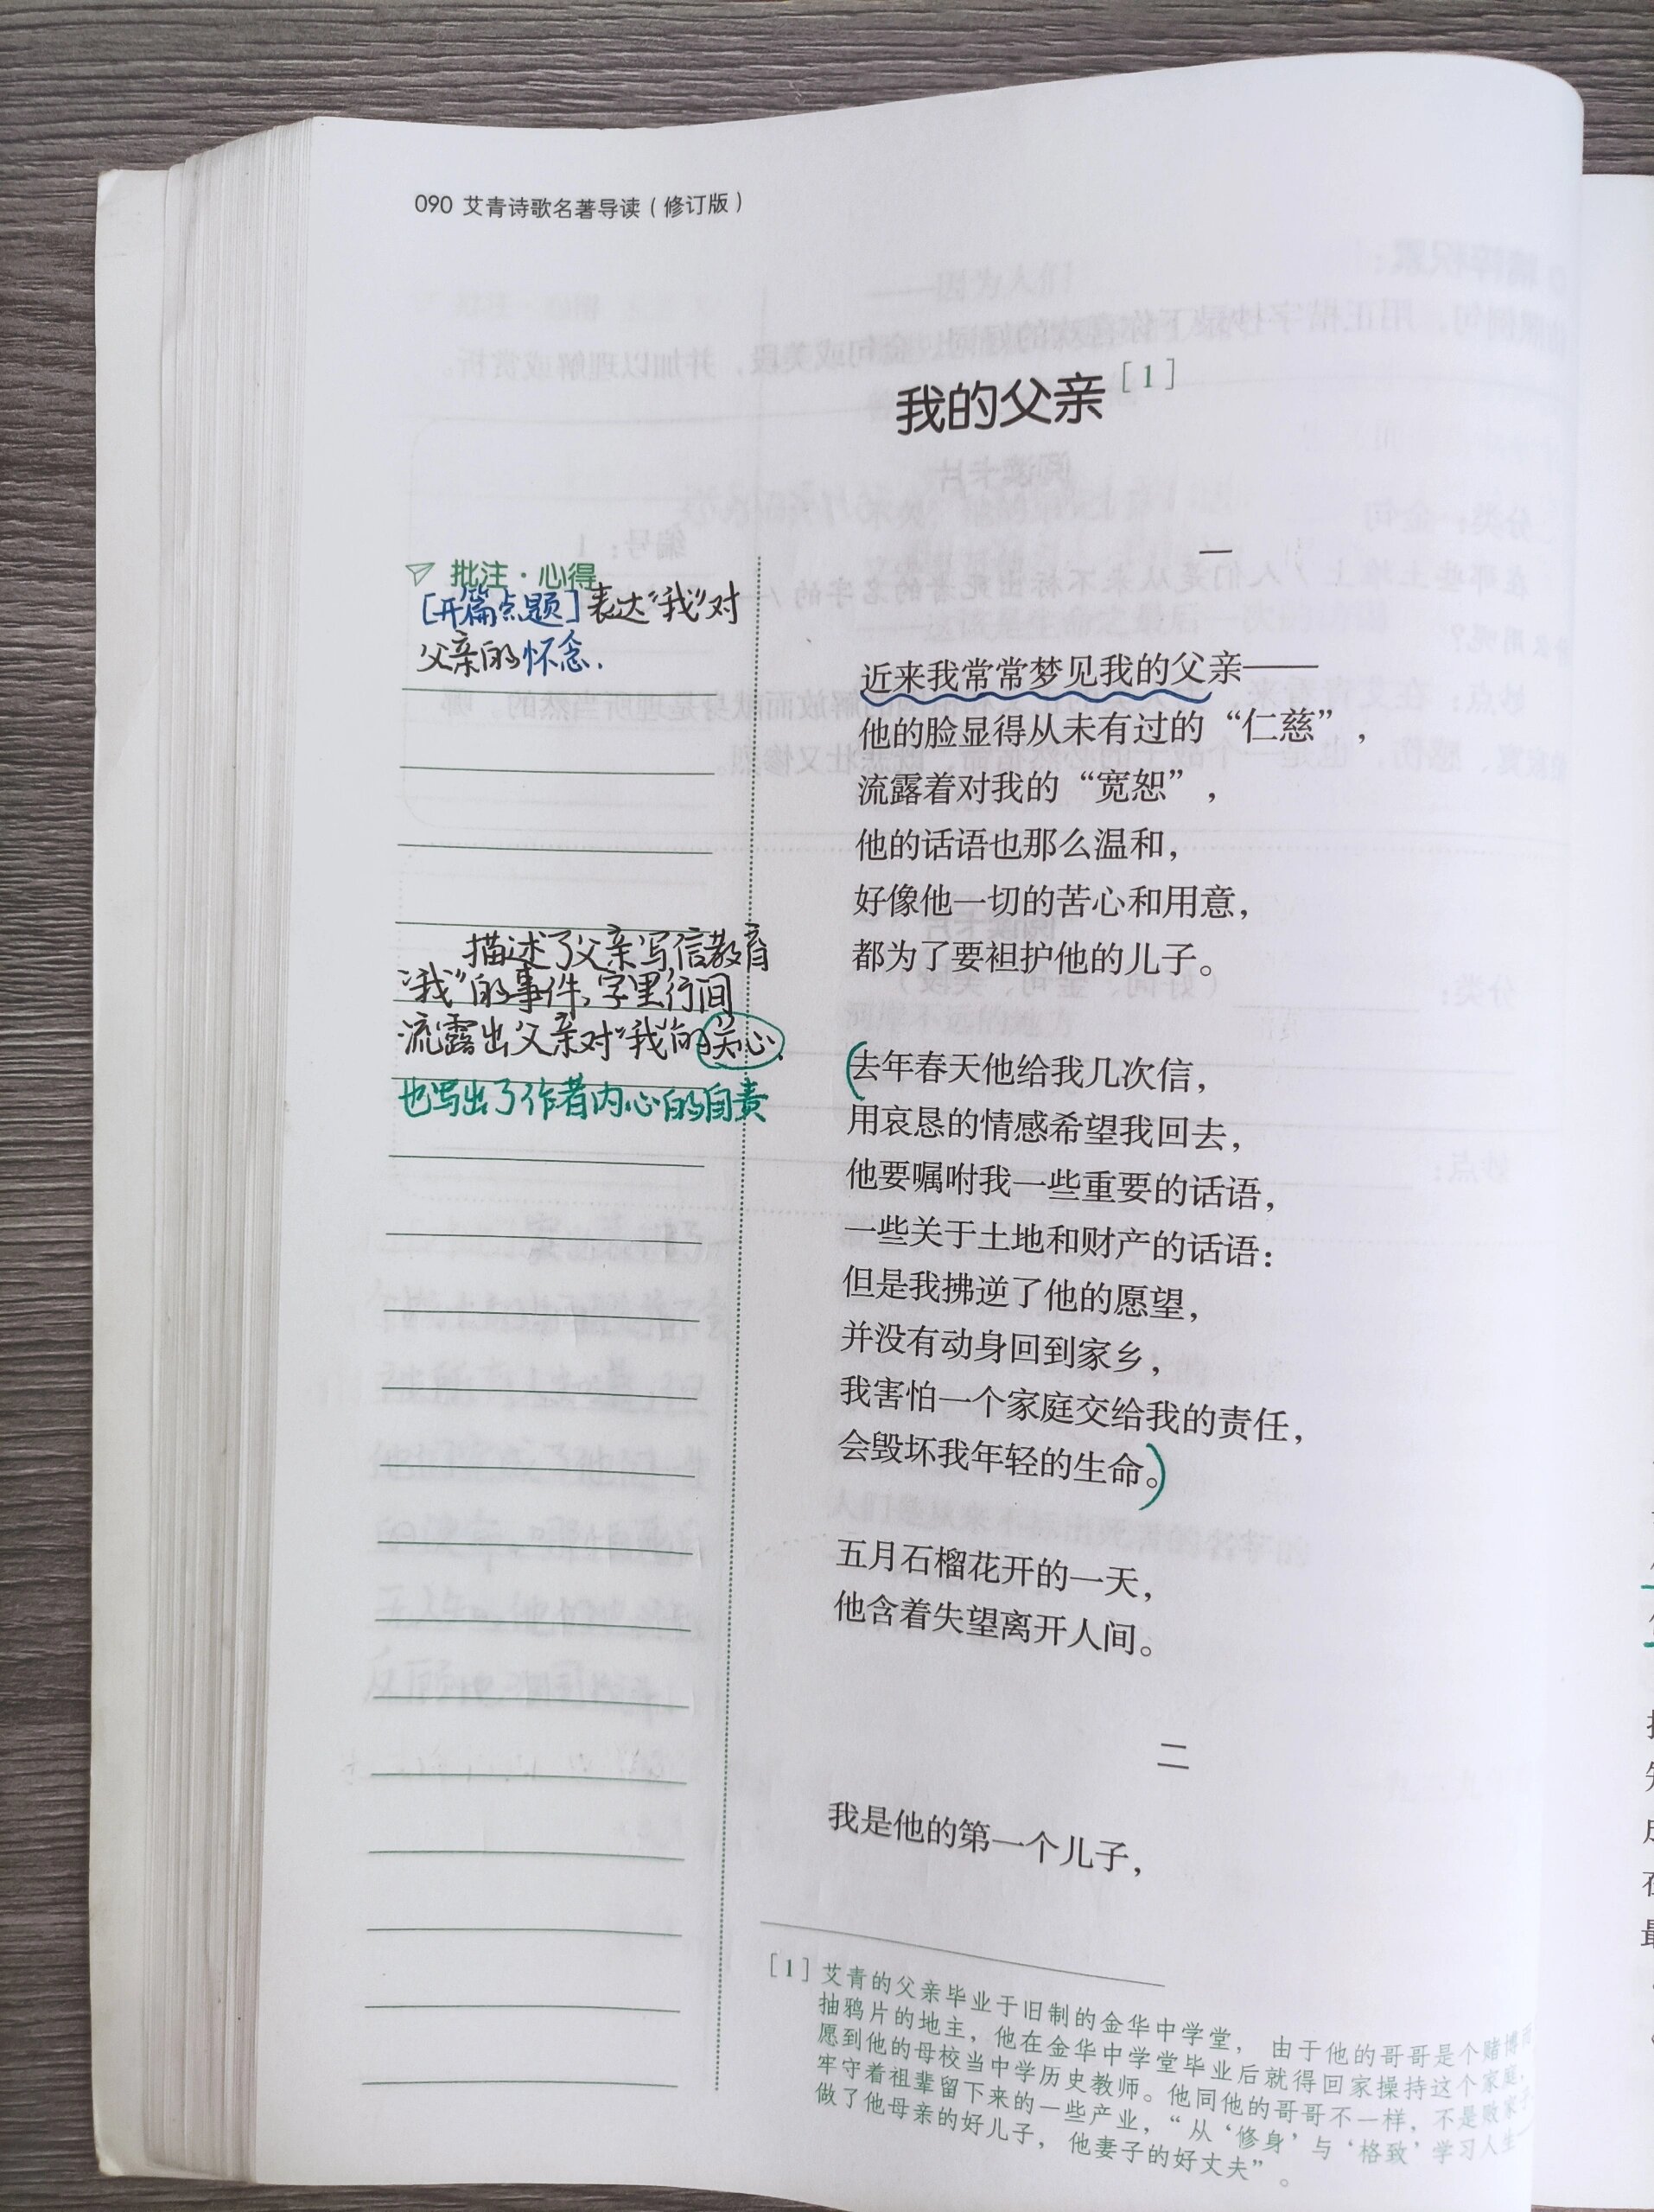 090 艾青诗歌名著导读（修订版）
我的父亲[1]
批注·心得
[开篇点题]表达“我”对
父亲的怀念.
描述了父亲写信教育
“我”的事件,字里行间
流露出父亲对“我”的关心.
也写出了作者内心的自责
一
近来我常常梦见我的父亲——
他的脸显得从未有过的“仁慈”，
流露着对我的“宽恕”，
他的话语也那么温和，
好像他一切的苦心和用意，
都为了要袒护他的儿子。
去年春天他给我几次信，
用哀恳的情感希望我回去，
他要嘱咐我一些重要的话语，
一些关于土地和财产的话语：
但是我拂逆了他的愿望，
并没有动身回到家乡，
我害怕一个家庭交给我的责任，
会毁坏我年轻的生命。
五月石榴花开的一天，
他含着失望离开人间。
二
我是他的第一个儿子，
[1] 艾青的父亲毕业于旧制的金华中学堂，由于他的哥哥是个赌博
抽鸦片的地主，他在金华中学堂毕业后就得回家操持这个家庭，
愿到他的母校当中学历史教师。他同他的哥哥不一样，不是败家
牢守着祖辈留下来的一些产业，“从‘修身’与‘格致’学习人生
做了他母亲的好儿子，他妻子的好丈夫”。